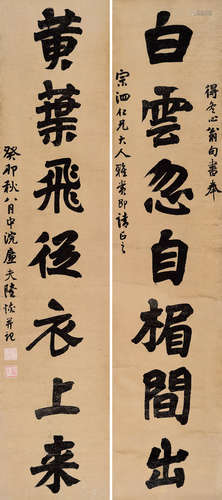 得冬心翁句書奉
白雲忽自楣間出
宗泗仁兄大人雅賞即請正之
黃葉飛從衣上来
癸卯秋八月中浣廉夫陸恢并記